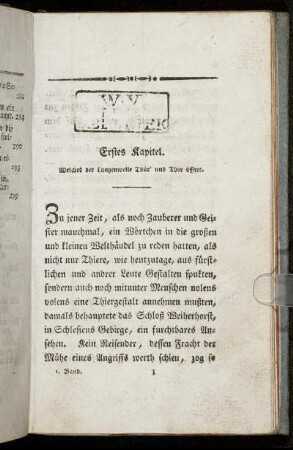 Erstes Kapitel.
Welches der Langenweile Thür' und Thor öffnet.
Zu jener Zeit, als noch Zauberer und Gei-
ster manchmal, ein Wörtchen in die großen
und kleinen Welthändel zu reden hatten, als
nicht nur Thiere, wie heutzutage, aus fürst-
lichen und andrer Leute Gestalten spukten,
sondern auch noch mitunter Menschen nolens
volens eine Thiergestalt annehmen mußten,
damals behauptete das Schloß Weiherhorst,
in Schlesiens Gebirge, ein furchtbares An-
sehen. Kein Reisender, dessen Fracht der
Mühe eines Angriffs werth schien, zog so
1. Band. 1